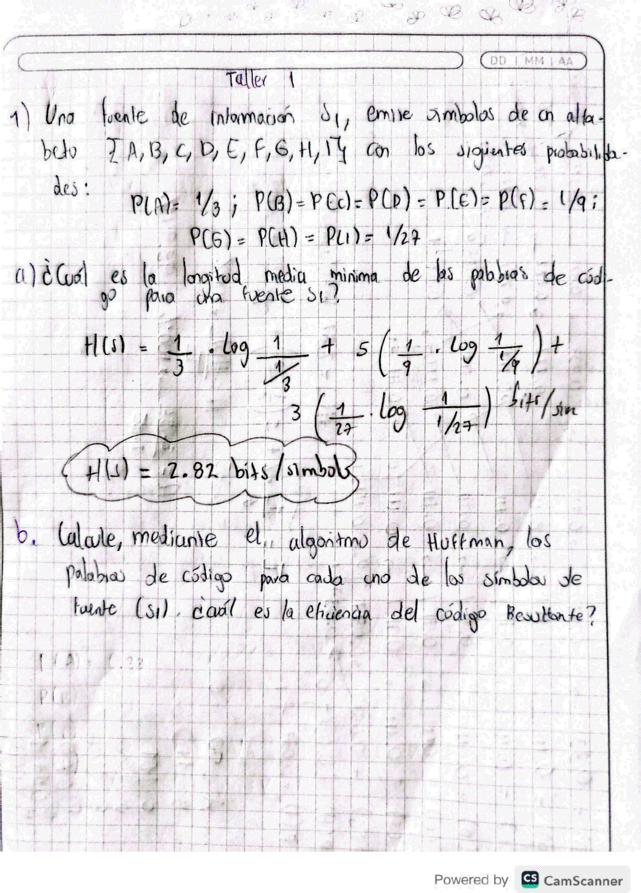 DD | MM | AA
Taller 1
1) Una fuente de información S1, emite simbolos de un alfa-
beto {A, B, C, D, E, F, G, H, I} con los siguientes probabilida-
des:
P(A)= 1/3 ; P(B) = P(C) = P(D) = P(E) = P(F) = 1/9 ;
P(G) = P(H) = P(I) = 1/27
a) ¿Cuál es la longitud media minima de las palabras de códi-
go para una fuente S1?
H(s) = 1/3 · Log 1/(1/3) + 5 ( 1/9 · Log 1/(1/9) ) +
3 ( 1/27 · Log 1/(1/27) ) bits/sim
H(s) = 2.82 bits/simbolo
b. Calcule, mediante el algoritmo de Huffman, los
palabras de código para cada uno de los simbolos de
fuente (S1). ¿cuál es la eficiencia del código Resultante?
Powered by CS CamScanner